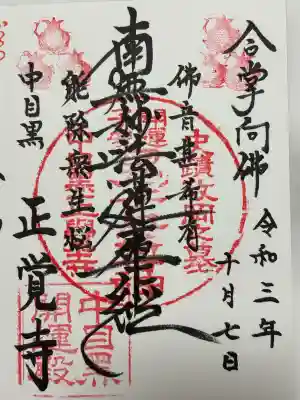 合掌向佛
令和三年
十月七日
佛音甚希有
南無妙法蓮華經
能除衆生悩
中目黒
正覚寺
中目黒
開運殿